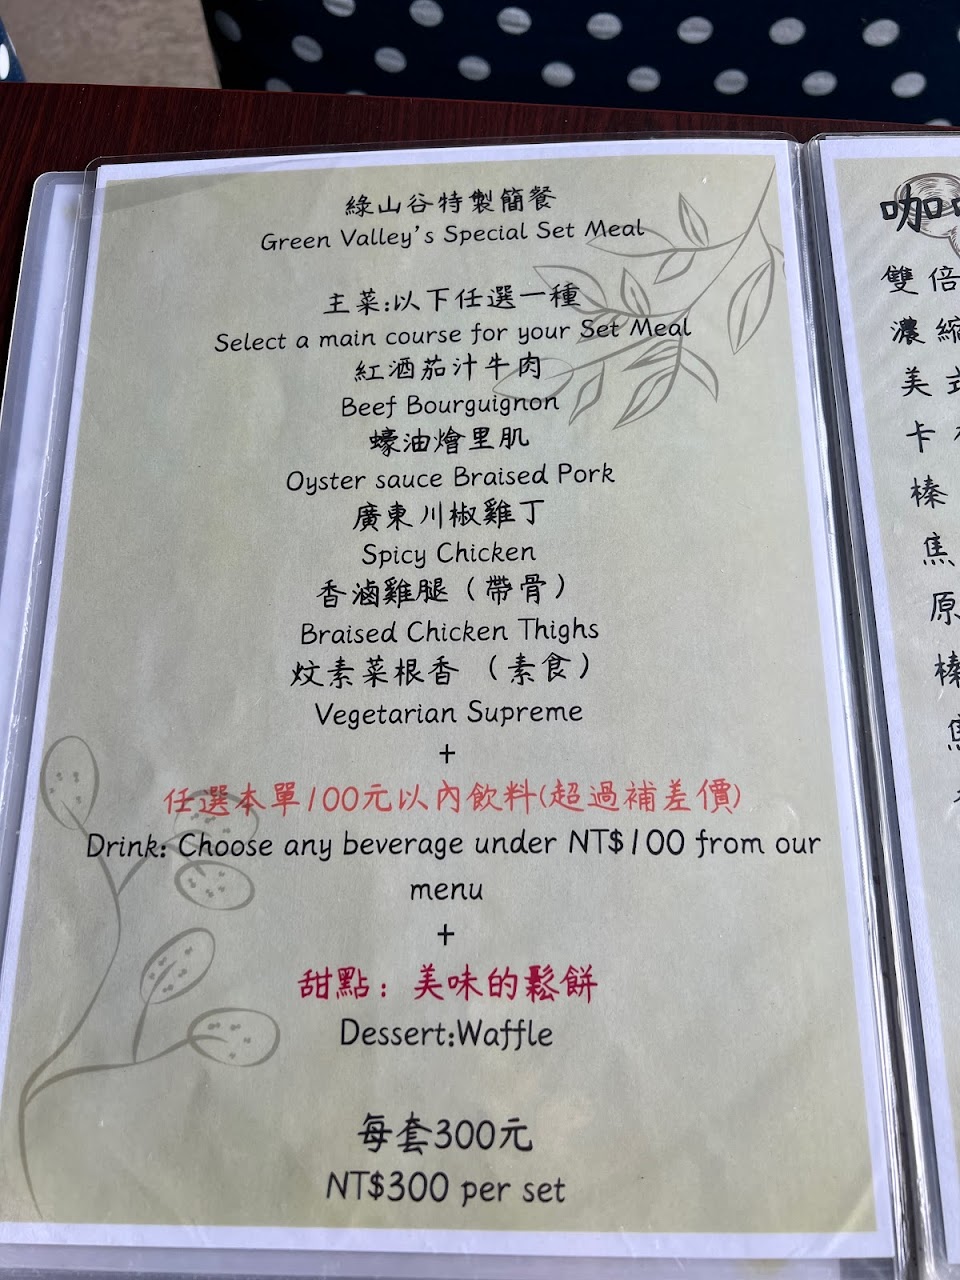 綠山谷特製簡餐
Green Valley's Special Set Meal
主菜:以下任選一種
Select a main course for your Set Meal
紅酒茄汁牛肉
Beef Bourguignon
蠔油燴里肌
Oyster sauce Braised Pork
廣東川椒雞丁
Spicy Chicken
香滷雞腿（帶骨）
Braised Chicken Thighs
炆素菜根香 （素食）
Vegetarian Supreme
+
任選本單100元以內飲料(超過補差價)
Drink: Choose any beverage under NT$100 from our
menu
+
甜點：美味的鬆餅
Dessert:Waffle
每套300元
NT$300 per set
咖
雙倍
濃縮
美式
卡
榛
焦
原
榛